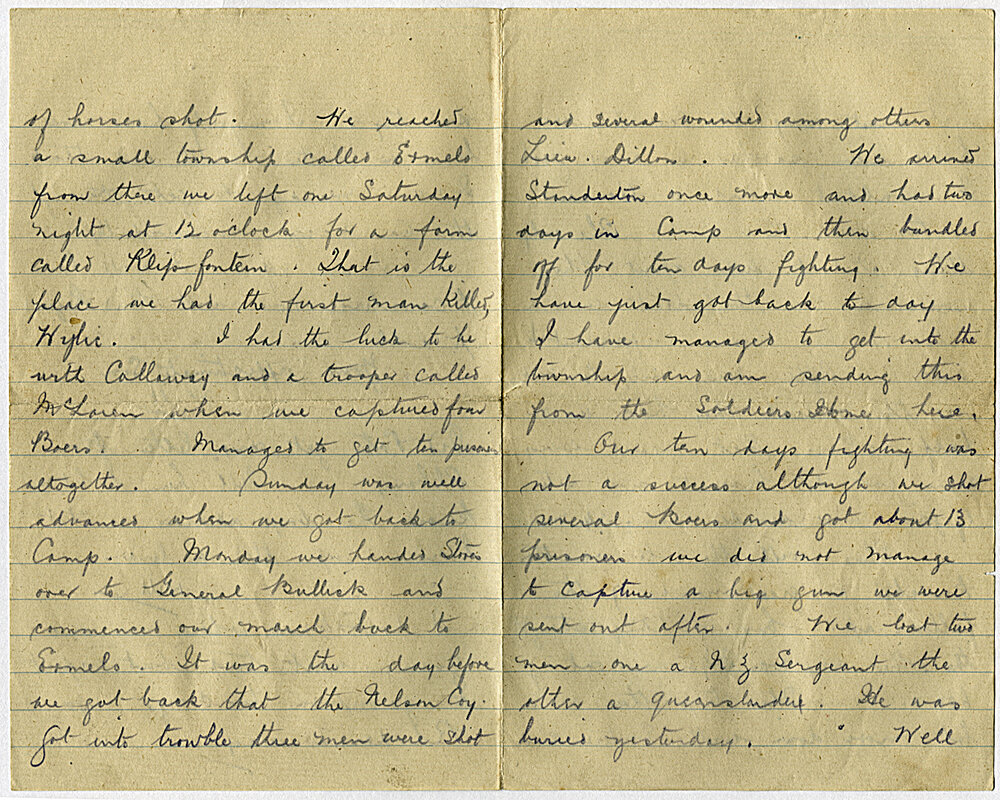 of horses shot. We reached
a small township called Ermelo
from there we left one Saturday
night at 12 oclock for a farm
called Klip-fontein. That is the
place we had the first man killed,
Wylie. I had the luck to be
with Callaway and a trooper called
McLaren when we captured four
Boers. Managed to get ten prisoners
altogether. Sunday was well
advanced when we got back to
Camp. Monday we handed Stores
over to General Bullick and
commenced our march back to
Ermelo. It was the day before
we got back that the Nelson Coy.
Got into trowble three men were shot
and several wounded among others
Lieu. Dillon. We arrived
Standerton once more and had two
days in Camp and then bundled
off for ten days fighting. We
have just got back to day
I have managed to get into the
township and am sending this
from the Soldiers Home here.
Our ten days fighting was
not a success although we shot
several Boers and got about 13
prisoners we did not manage
to capture a big gun we were
sent out after. We lost two
men one a N Z Sergeant the
other a Queenslander. He was
buried yesterday. Well